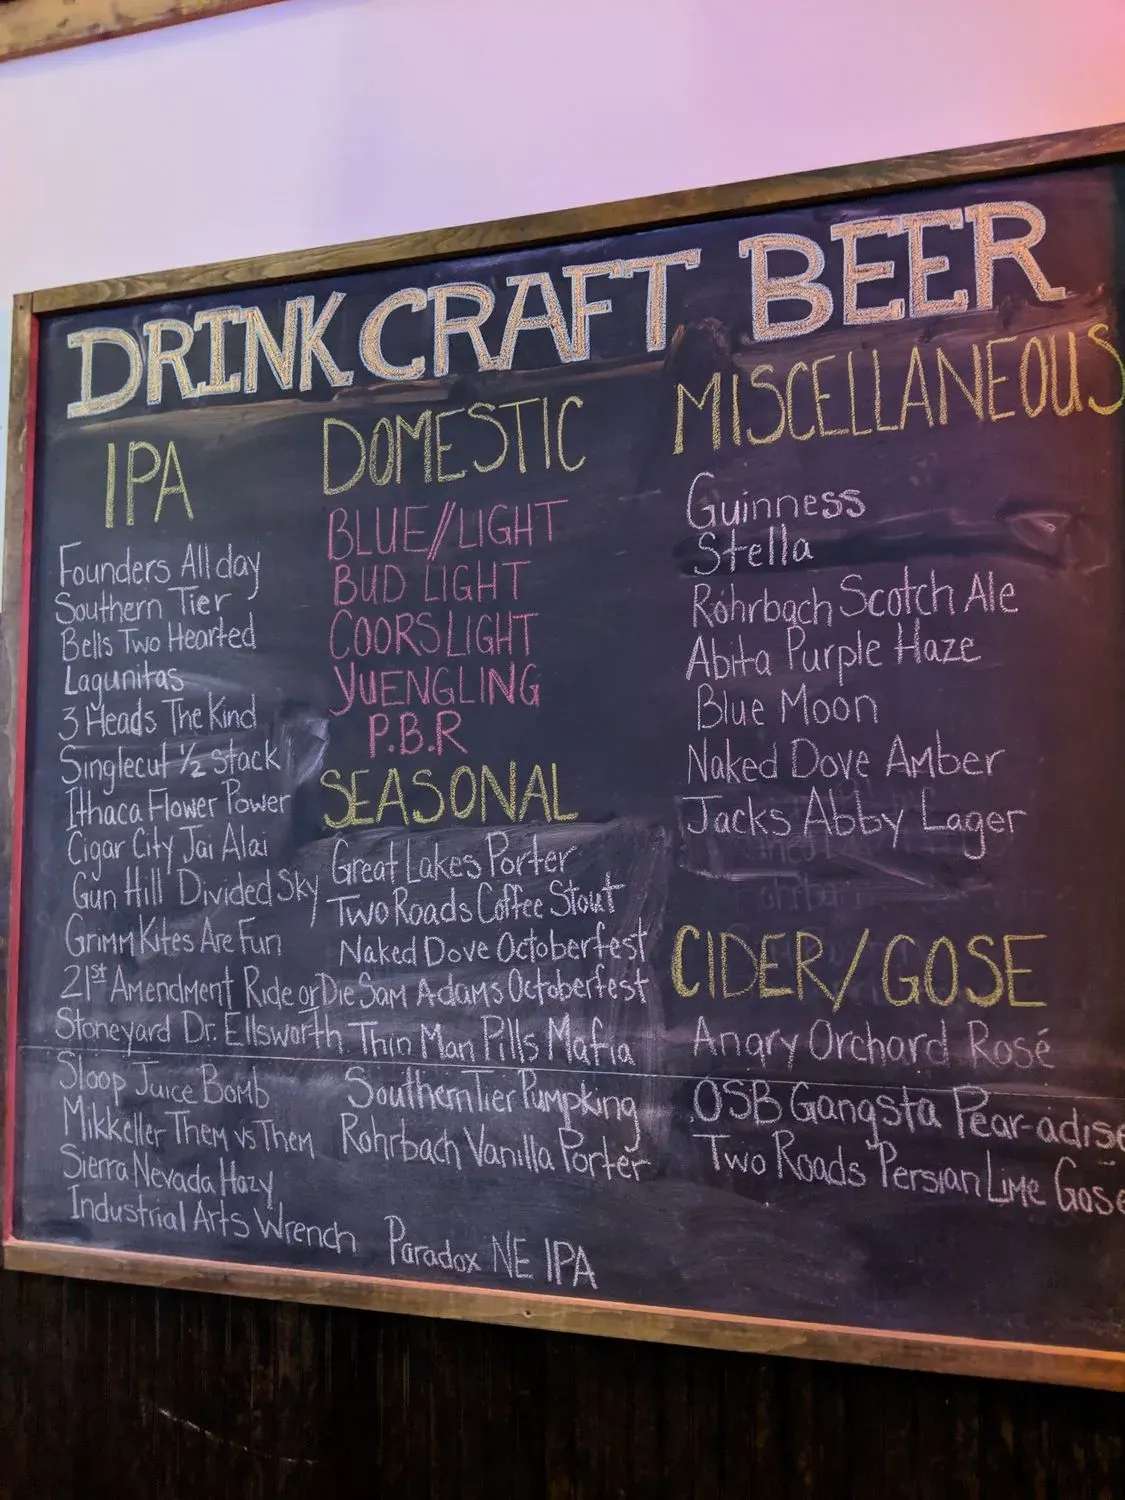 DRINK CRAFT BEER
IPA
Founders All day
Southern Tier
Bells Two Hearted
Lagunitas
3 Heads The Kind
Singlecut 1/2 stack
Ithaca Flower Power
Cigar City Jai Alai
Gun Hill Divided Sky
Grimm Kites Are Fun
21st Amendment Ride or Die
Stoneyard Dr. Ellsworth
Sloop Juice Bomb
Mikkeller Them vs Them
Sierra Nevada Hazy
Industrial Arts Wrench
Paradox NE IPA
DOMESTIC
BLUE//LIGHT
BUD LIGHT
COORS LIGHT
YUENGLING
P.B.R
SEASONAL
Great Lakes Porter
Two Roads Coffee Stout
Naked Dove Octoberfest
Sam Adams Octoberfest
Thin Man Pills Mafia
Southern Tier Pumpking
Rohrbach Vanilla Porter
MISCELLANEOUS
Guinness
Stella
Rohrbach Scotch Ale
Abita Purple Haze
Blue Moon
Naked Dove Amber
Jacks Abby Lager
CIDER/GOSE
Angry Orchard Rosé
OSB Gangsta Pear-adise
Two Roads Persian Lime Gose